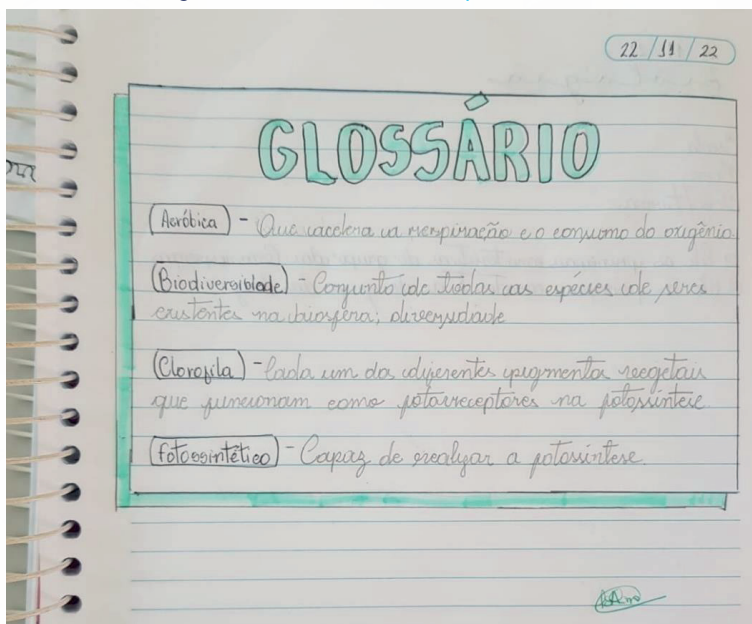 22/11/22
GLOSSÁRIO
Aeróbica - Que acelera a respiração e o consumo do oxigênio
Biodiversidade - Conjunto de todas as espécies de seres
existentes na biosfera; diversidade
Clorofila - Cada um dos diferentes pigmentos vegetais
que funcionam como fotorreceptores na fotossíntese
Fotossintético - Capaz de realizar a fotossíntese.